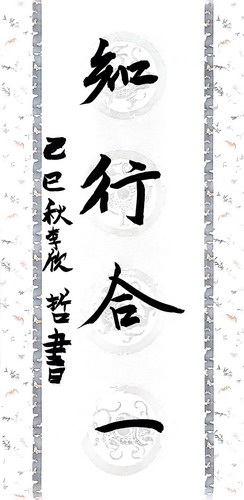 知行合一
乙巳秋李欣哲書